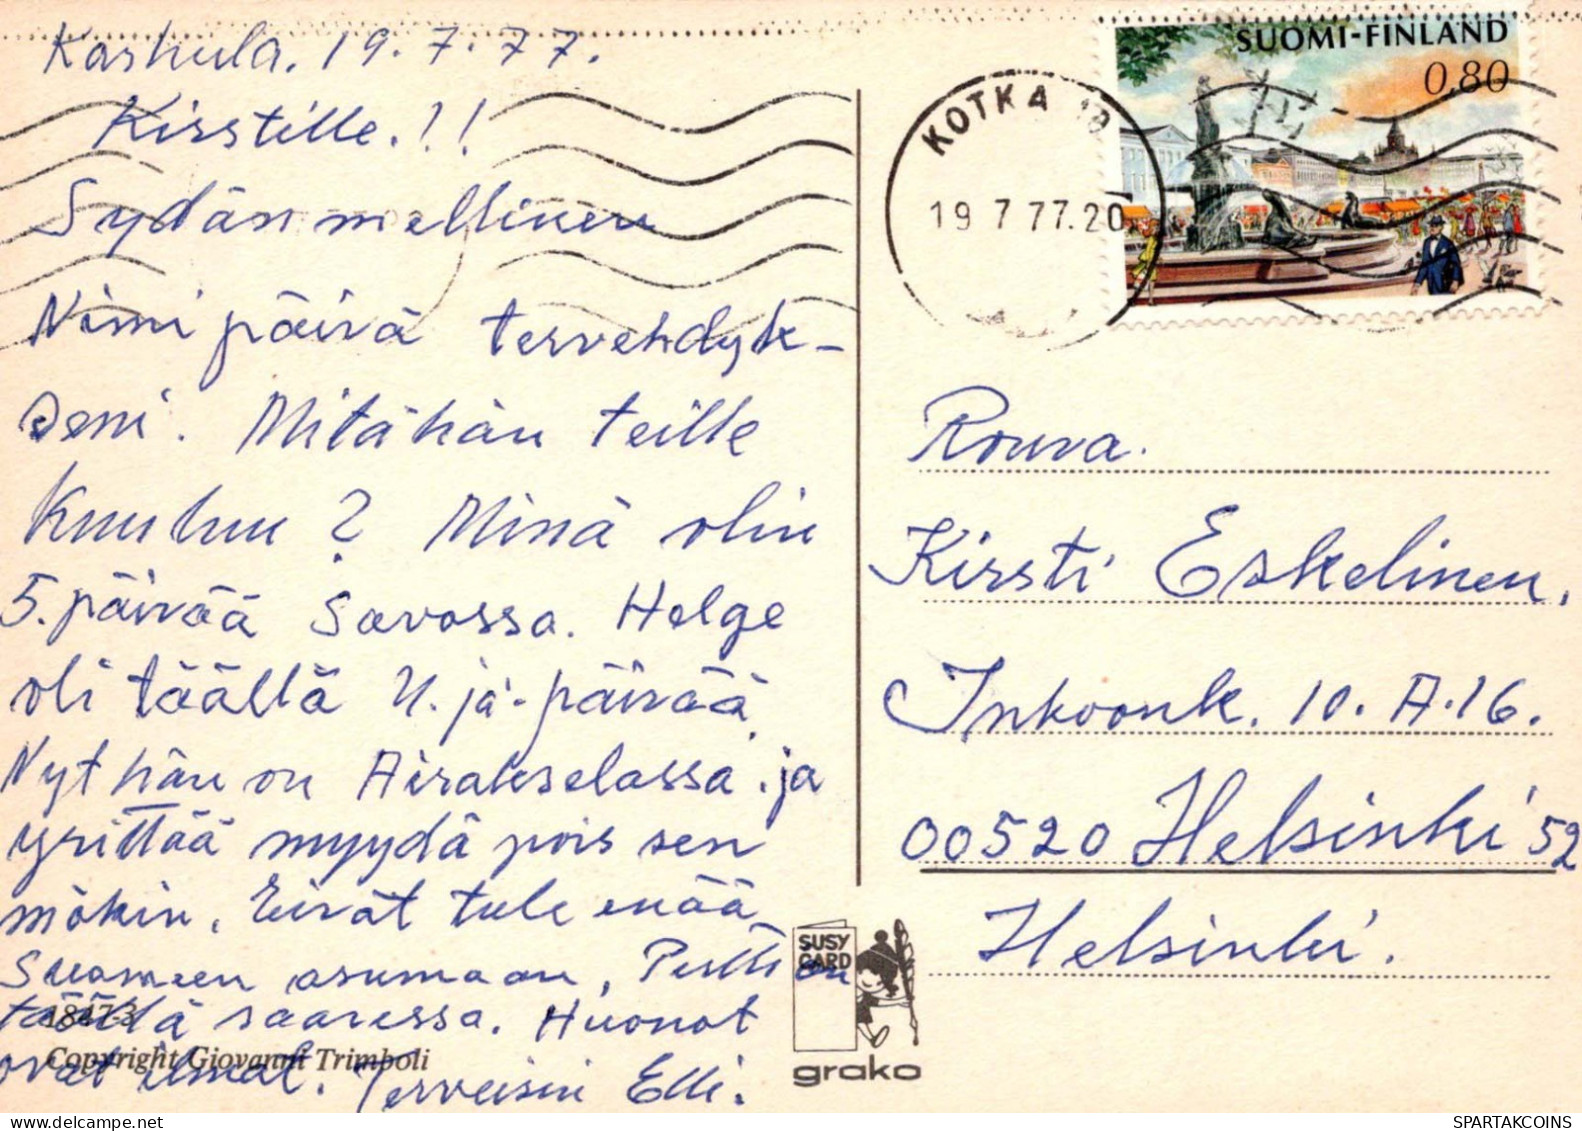 Karhula. 19.7.77.
Kirstille.!!
Sydänmellinen
Nimipäivä tervehdyk-
seni. Mitähän teille
kuuluu? Minä olin
5. päivää Savossa. Helge
oli täällä 4. jä-päivää
Nyt hän on Airakselassa. ja
yrittää myydä pois sen
mökin. Eivät tule enää
Suomeen asumaan, Pertti on
täällä saaressa. Huonot
ovat ilmat. Terveisin Elli.
18473
Copyright Giovanni Trimboli
SUOMI-FINLAND
0,80
KOTKA 10
19 7 77.20
Rouva.
Kirsti Eskelinen.
Inkoonk. 10. A.16.
00520 Helsinki 52
Helsinki.
SUSY
CARD
grako
SPARTAKCOINS.COM